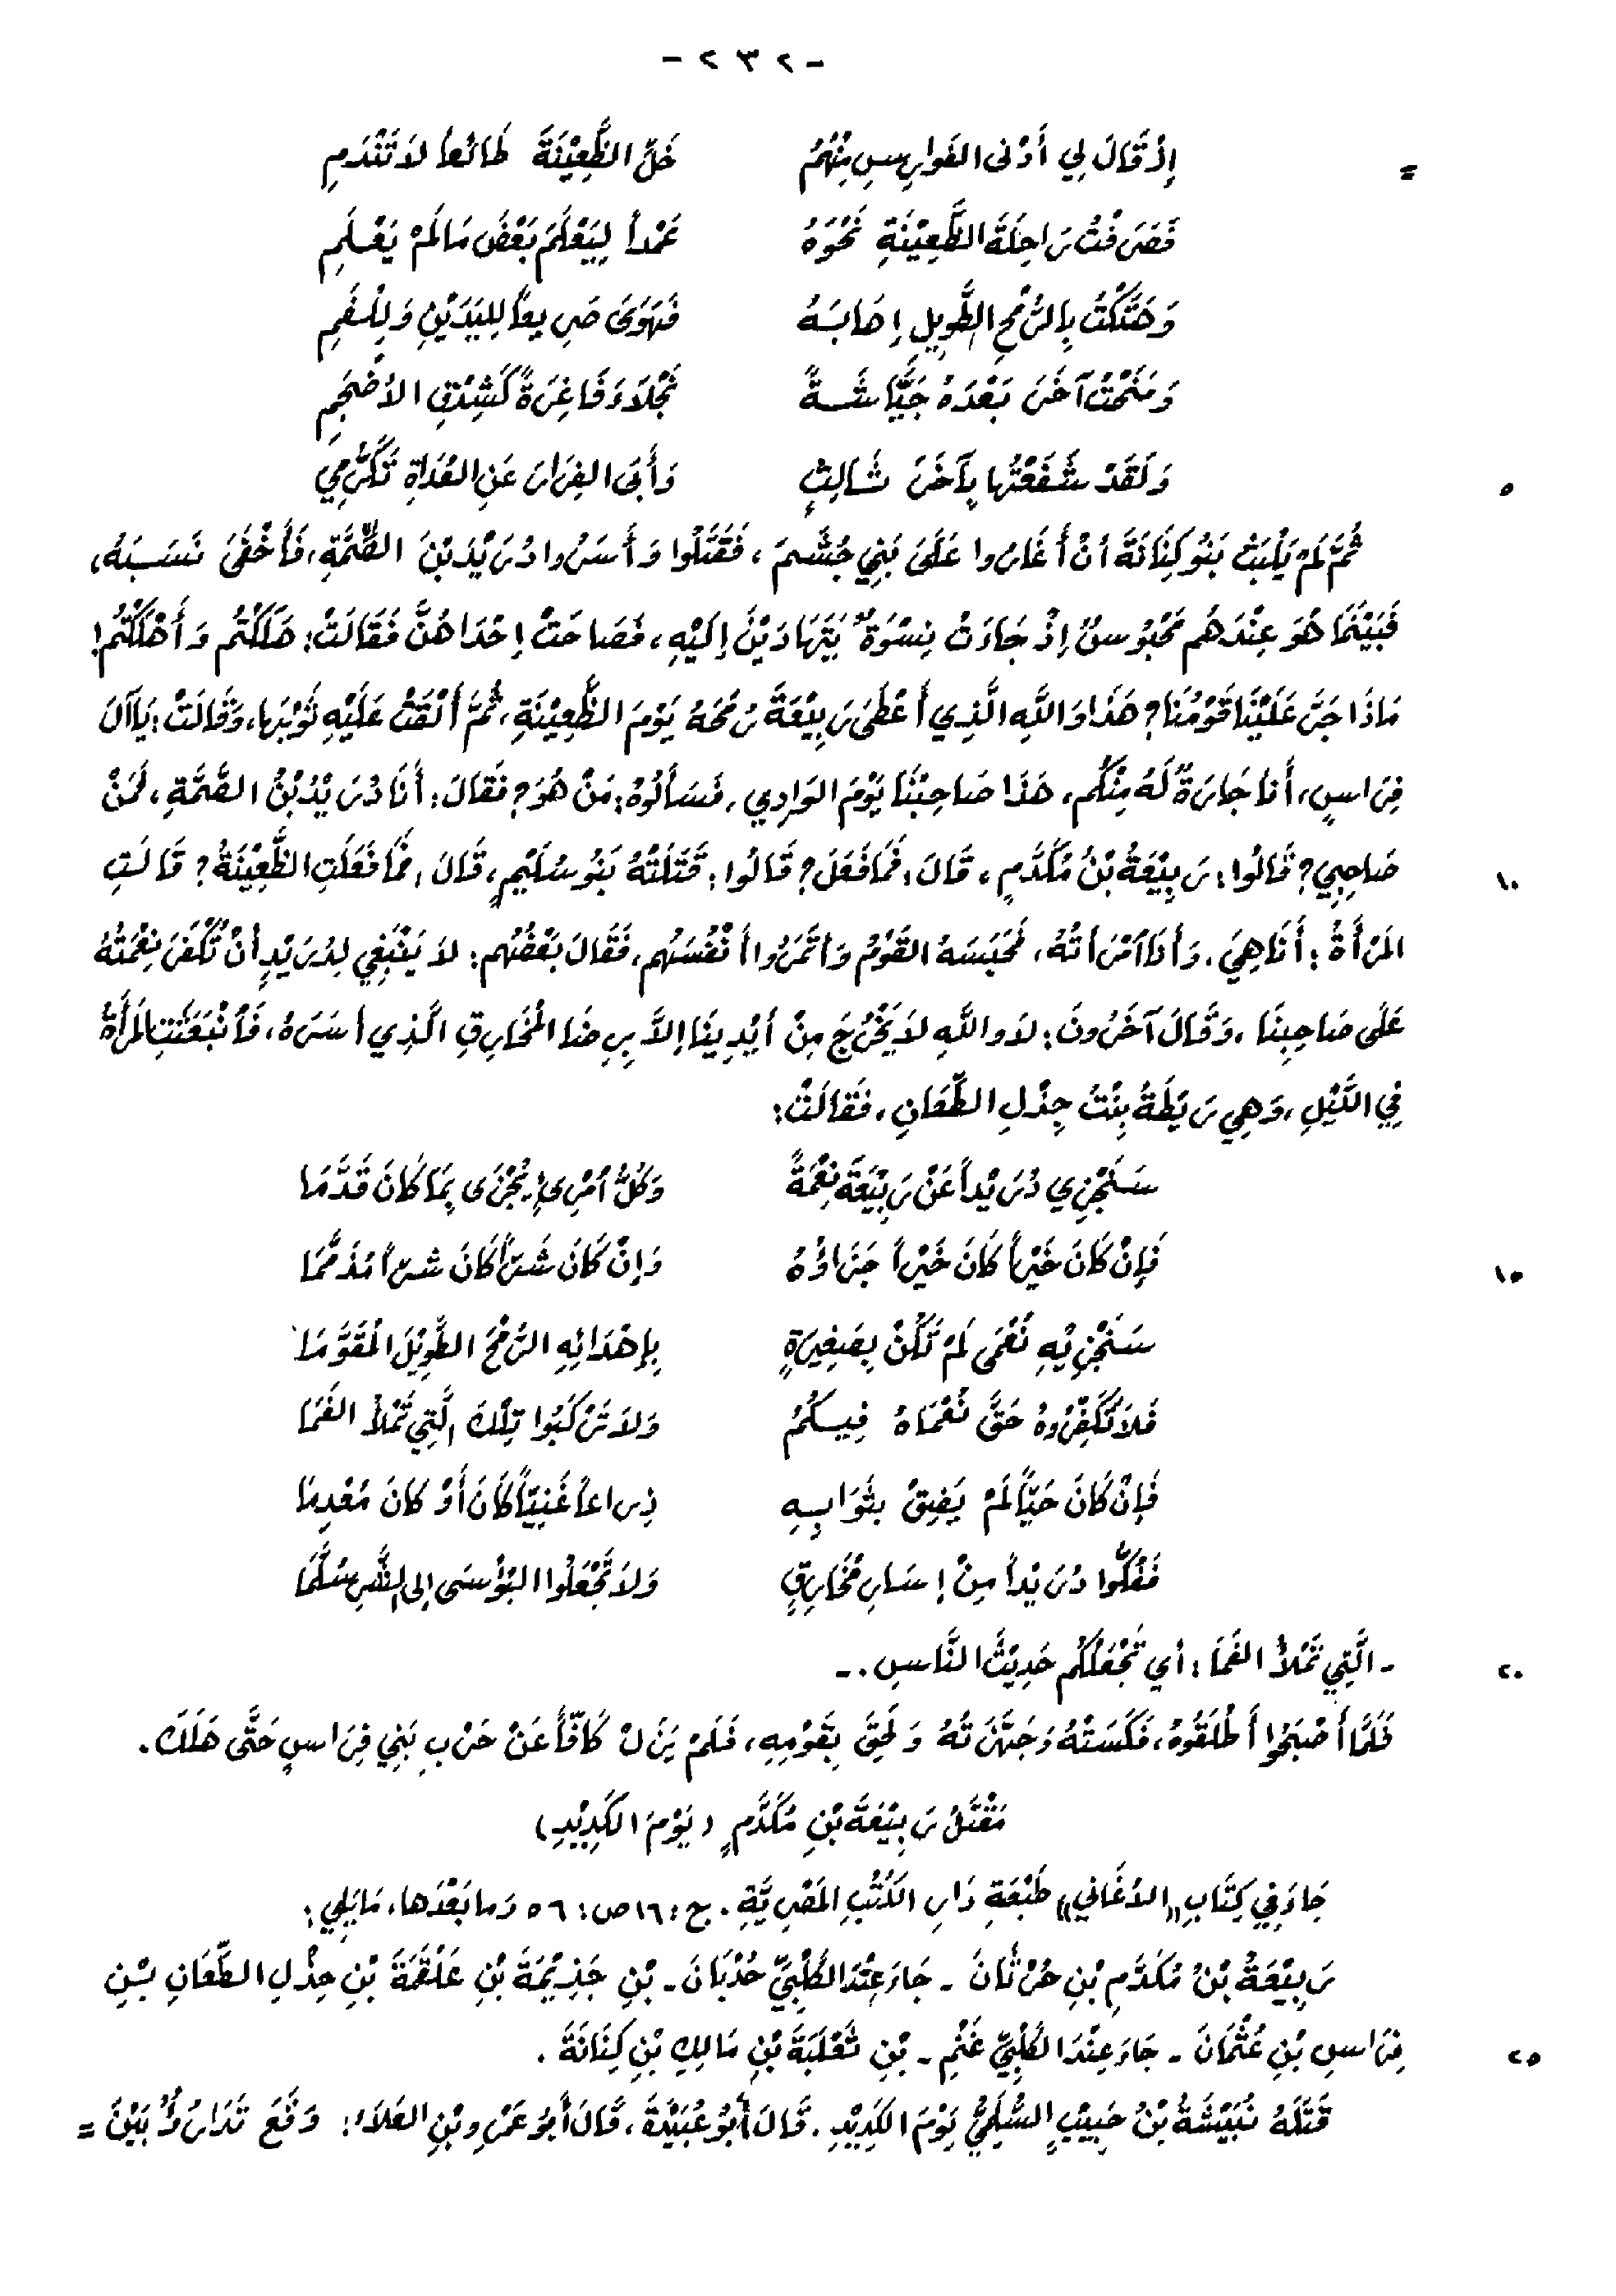 - ٢٣٢ -
= إِذْ قَالَ لِي أَدْنَى الفَوَارِسِ مِنْهُمُ خَلِّ الظَّعِيْنَةَ طَائِعاً لاَ تَنْدَمِ
فَصَرَفْتُ رَاحِلَةَ الظَّعِيْنَةِ نَحْوَهُ عَمْداً لِيَعْلَمَ بَعْضَ مَا لَمْ يَعْلَمِ
وَهَتَكْتُ بِالرُّمْحِ الطَّوِيلِ إِهَابَهُ فَهَوَى صَرِيعاً لِليَدَيْنِ وَلِلْفَمِ
وَمَنَحْتُ آخَرَ بَعْدَهُ جَيَّاشَةً نَجْلاَءَ فَاغِرَةً كَشِدْقِ الأَضْجَمِ
٥ وَلَقَدْ شَفَعْتُهَا بِآخَرَ ثَالِثٍ وَأَبَى الفِرَارَ عَنِ العُدَاةِ تَكَرُّمِي
ثُمَّ لَمْ يَلْبَثْ بَنُو كِنَانَةَ أنْ أَغَارُوا عَلَى بَنِي جُشَمَ، فَقَتَلُوا وَأَسَرُوا دُرَيْدَ بْنَ الصِّمَّةِ، فَأَخْفَى نَسَبَهُ،
فَبَيْنَمَا هُوَ عِنْدَهُم مَحْبُوسٌ إِذْ جَاءَتْ نِسْوَةٌ يَتَهَادَيْنَ إِلَيْهِ، فَصَاحَتْ إِحْدَاهُنَّ فَقَالَتْ: هَلَكْتُم وَأَهْلَكْتُم!
مَاذَا جَرَّ عَلَيْنَا قَوْمُنَا؟ هَذَا وَاللَّهِ الَّذِي أَعْطَى رَبِيْعَةَ رُمْحَهُ يَوْمَ الظَّعِيْنَةِ، ثُمَّ أَلْقَتْ عَلَيْهِ ثَوْبَهَا، وَقَالَتْ: يَا آلَ
فِرَاسٍ، أَنَا جَارَةٌ لَهُ مِنْكُم، هَذَا صَاحِبُنَا يَوْمَ الوَادِي، فَسَأَلُوهُ: مَنْ هُوَ؟ فَقَالَ: أَنَا دُرَيْدُ بْنُ الصِّمَّةِ، فَمَنْ
١٠ صَاحِبِي؟ قَالُوا: رَبِيْعَةُ بْنُ مُكَدَّمٍ، قَالَ: فَمَا فَعَلَ؟ قَالُوا: قَتَلَتْهُ بَنُو سُلَيْمٍ، قَالَ: فَمَا فَعَلَتِ الظَّعِيْنَةُ؟ قَالَتِ
المَرْأَةُ: أَنَا هِيَ، وَأَنَا آمْرَأتُهُ، فَحَبَسَهُ القَوْمُ وَأتَمَرُوا أَنْفُسَهُم، فَقَالَ بَعْضُهُم: لاَ يَنْبَغِي لِدُرَيْدٍ أنْ تُكْفَرَ نِعْمَتُهُ
عَلَى صَاحِبِنَا، وَقَالَ آخَرُونَ: لاَ واللَّهِ لاَ يَخْرُجَ مِنْ أيْدِيْنَا إلاَّ بِرِضَا المُخَارِقِ الَّذِي أسَرَهُ، فَآنْبَعَثَتِ المَرْأَةُ
فِي اللَّيْلِ، وَهِيَ رَيْطَةُ بِنْتُ جِذْلِ الطِّعَانِ، فَقَالَتْ:
سَنَجْزِي دُرَيْداً عَنْ رَبِيْعَةَ نِعْمَةً وَكُلُّ آمْرِئٍ يُجْزَى بِمَا كَانَ قَدَّمَا
١٥ فَإِنْ كَانَ خَيْراً كَانَ خَيْراً جَزَاؤُهُ وَإِنْ كَانَ شَرّاً كَانَ شَرّاً مُذَمَّمَا
سَنَجْزِيْهِ نُعْمَى لَمْ تَكُنْ بِصَغِيرَةٍ بِإِهْدَائِهِ الرُّمْحَ الطَّوِيْلَ المُقَوَّمَا
فَلاَ تُكَفِّرُوهُ حَقَّ نُعْمَاهُ فِيكُمُ وَلاَ تَرْكَبُوا تِلْكَ الَّتِي تَمْلأُ الفَمَا
فَإِنْ كَانَ حَيّاً لَمْ يَضِقْ بِثَوَابِهِ ذِرَاعاً غَنِيّاً كَانَ أَوْ كَانَ مُعْدِمَا
فَفُكُّوا دُرَيْداً مِنْ إِسَارِ مُخَارِقٍ وَلاَ تَجْعَلُوا البُؤْسَى إلى الشَّرِّ سُلَّمَا
٢٠ - الَّتِي تَمْلأُ الفَمَا: أي تَجْعَلُكُم حَدِيْثَ النَّاسِ. -
فَلَمَّا أَصْبَحُوا أَطْلَقُوهُ، فَكَسَتْهُ وَجَهَّزَتْهُ وَلَحِقَ بِقَوْمِهِ، فَلَمْ يَزَلْ كَافّاً عَنْ حَرْبِ بَنِي فِرَاسٍ حَتَّى هَلَكَ.
مَقْتَلُ رَبِيْعَةَ بْنِ مُكَدَّمٍ (يَوْمَ الكَدِيْدِ)
جَاءَ فِي كِتَابِ «الأَغَانِي» طَبْعَةِ دَارِ الكُتُبِ المَصْرِيَّةِ. ج: ١٦ ص: ٥٦ وَمَا بَعْدَهَا، مَا يَلِي:
رَبِيْعَةُ بْنُ مُكَدَّمِ بْنِ حُرْثَانَ - جَاءَ عِنْدَ الكَلْبِيِّ حُدْبَانَ - بْنِ جَذِيْمَةَ بْنِ عَلْقَمَةَ بْنِ جِذْلِ الطِّعَانِ بْنِ
٢٥ فِرَاسِ بْنِ عُثْمَانَ - جَاءَ عِنْدَ الكَلْبِيِّ غَنْمِ - بْنِ ثَعْلَبَةَ بْنِ مَالِكِ بْنِ كِنَانَةَ.
قَتَلَهُ نُبَيْشَةُ بْنُ حَبِيْبٍ السُّلَمِيُّ يَوْمَ الكَدِيْدِ. قَالَ أَبُو عُبَيْدَةَ، قَالَ أَبُو عَمْرِو بْنِ العَلاَءُ: وَقَعَ تَدَارُؤٌ بَيْنَ =